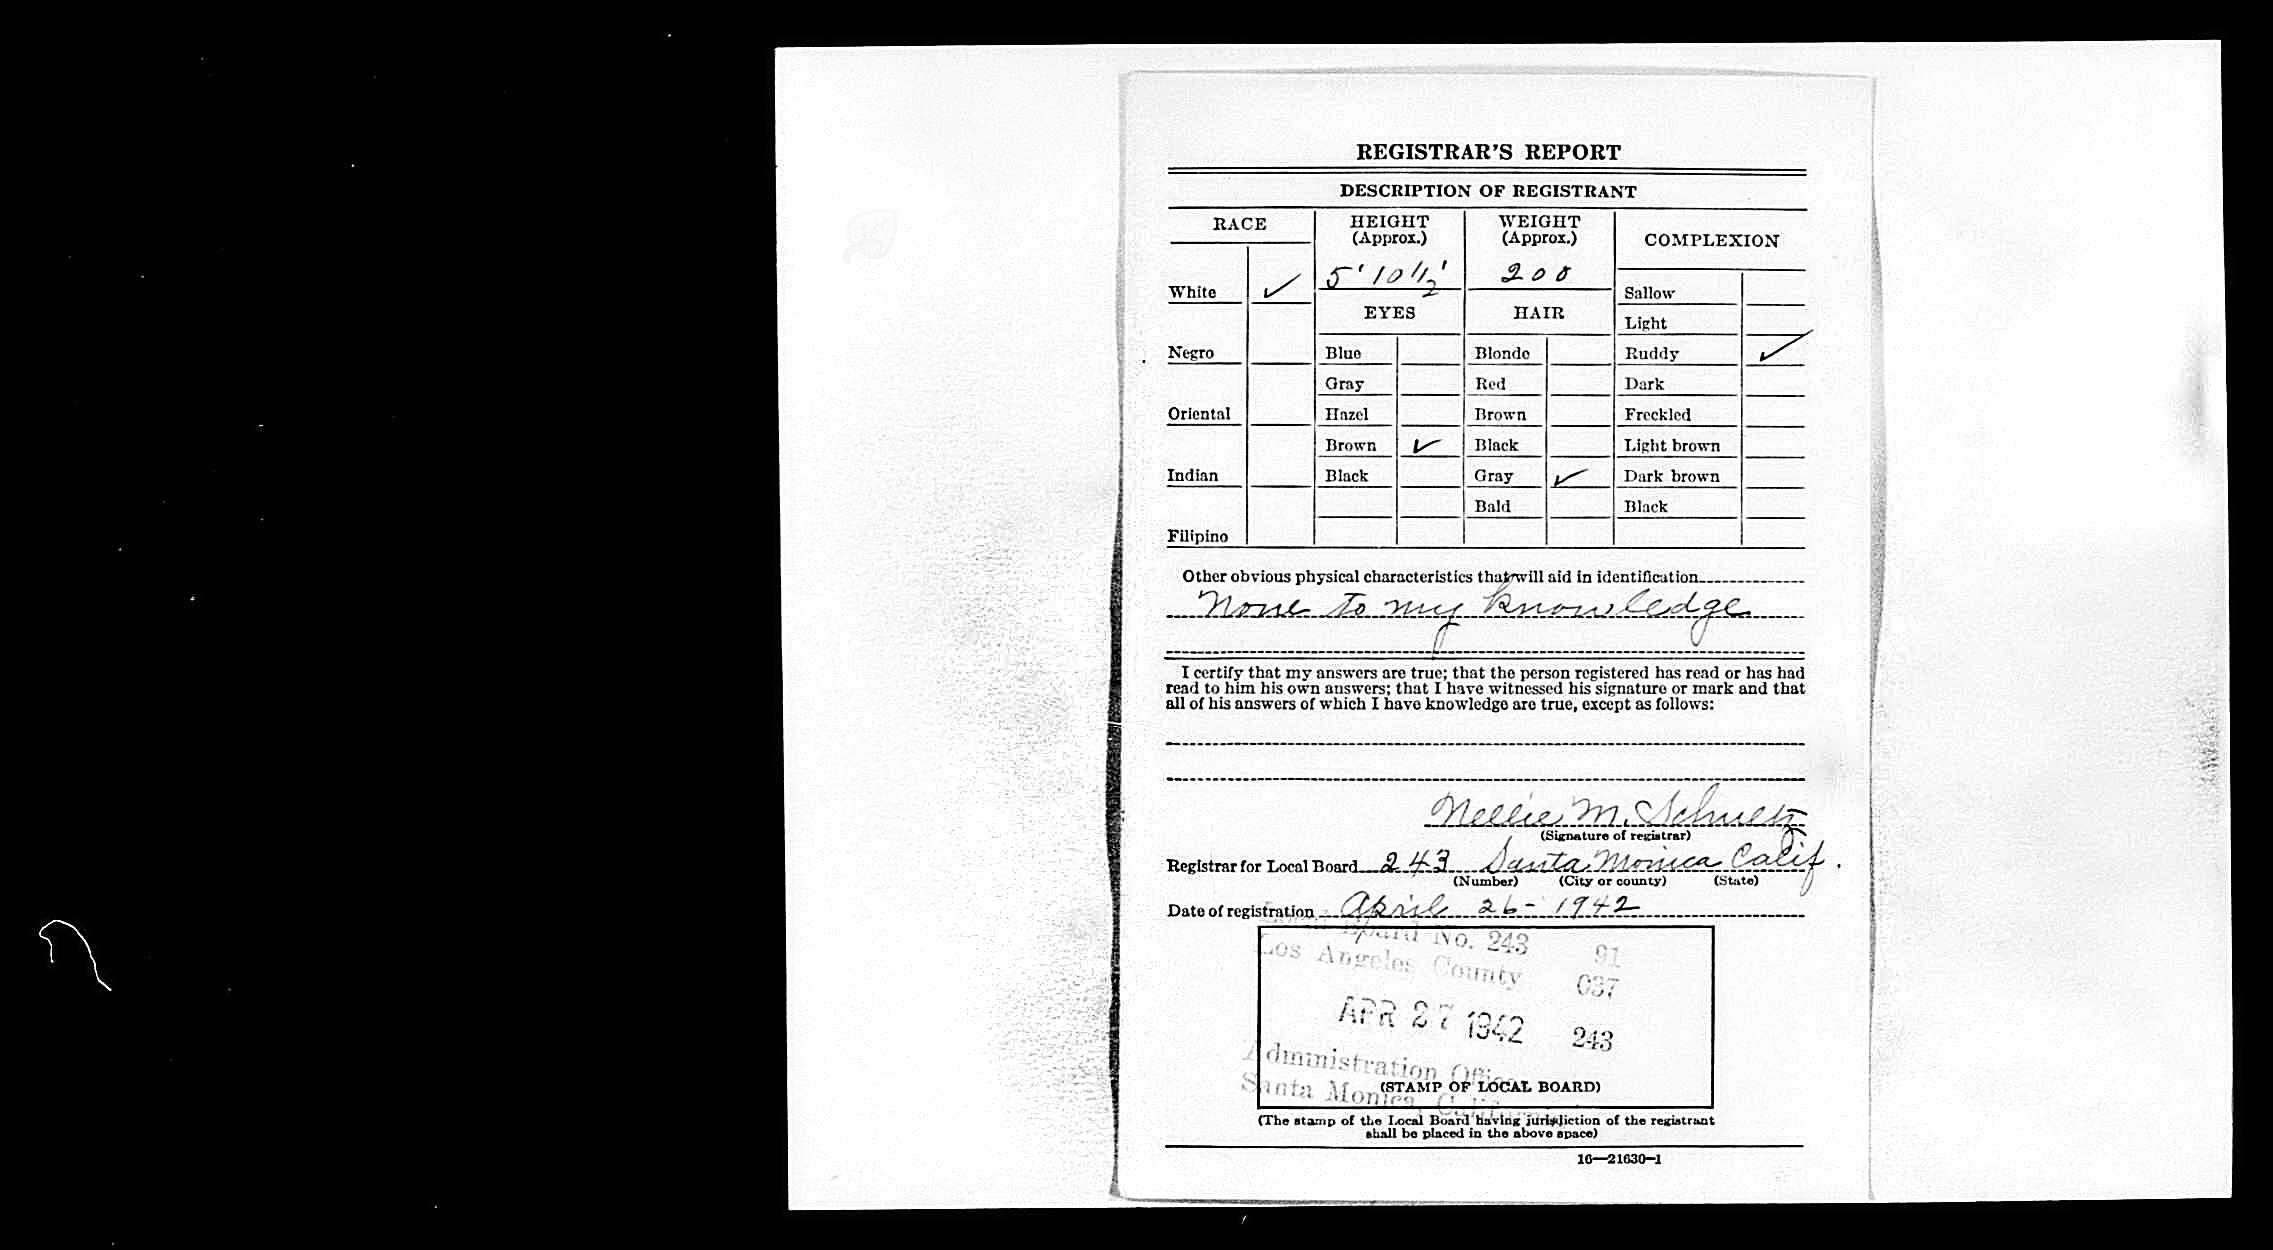 REGISTRAR'S REPORT
DESCRIPTION OF REGISTRANT
RACE
HEIGHT
(Approx.)
WEIGHT
(Approx.)
COMPLEXION
5' 10 1/2'
200
White ✓
Sallow
EYES
HAIR
Light
Negro
Blue
Blonde
Ruddy ✓
Gray
Red
Dark
Oriental
Hazel
Brown
Freckled
Brown ✓
Black
Light brown
Indian
Black
Gray ✓
Dark brown
Bald
Black
Filipino
Other obvious physical characteristics that will aid in identification
None to my knowledge
I certify that my answers are true; that the person registered has read or has had
read to him his own answers; that I have witnessed his signature or mark and that
all of his answers of which I have knowledge are true, except as follows:
Nellie M. Schultz
(Signature of registrar)
Registrar for Local Board 243 Santa Monica Calif.
(Number) (City or county) (State)
Date of registration April 26 - 1942
Board No. 243 91
Los Angeles County 037
APR 27 1942 243
Administration Office
Santa Monica, California
(STAMP OF LOCAL BOARD)
(The stamp of the Local Board having jurisdiction of the registrant
shall be placed in the above space)
16—21630-1